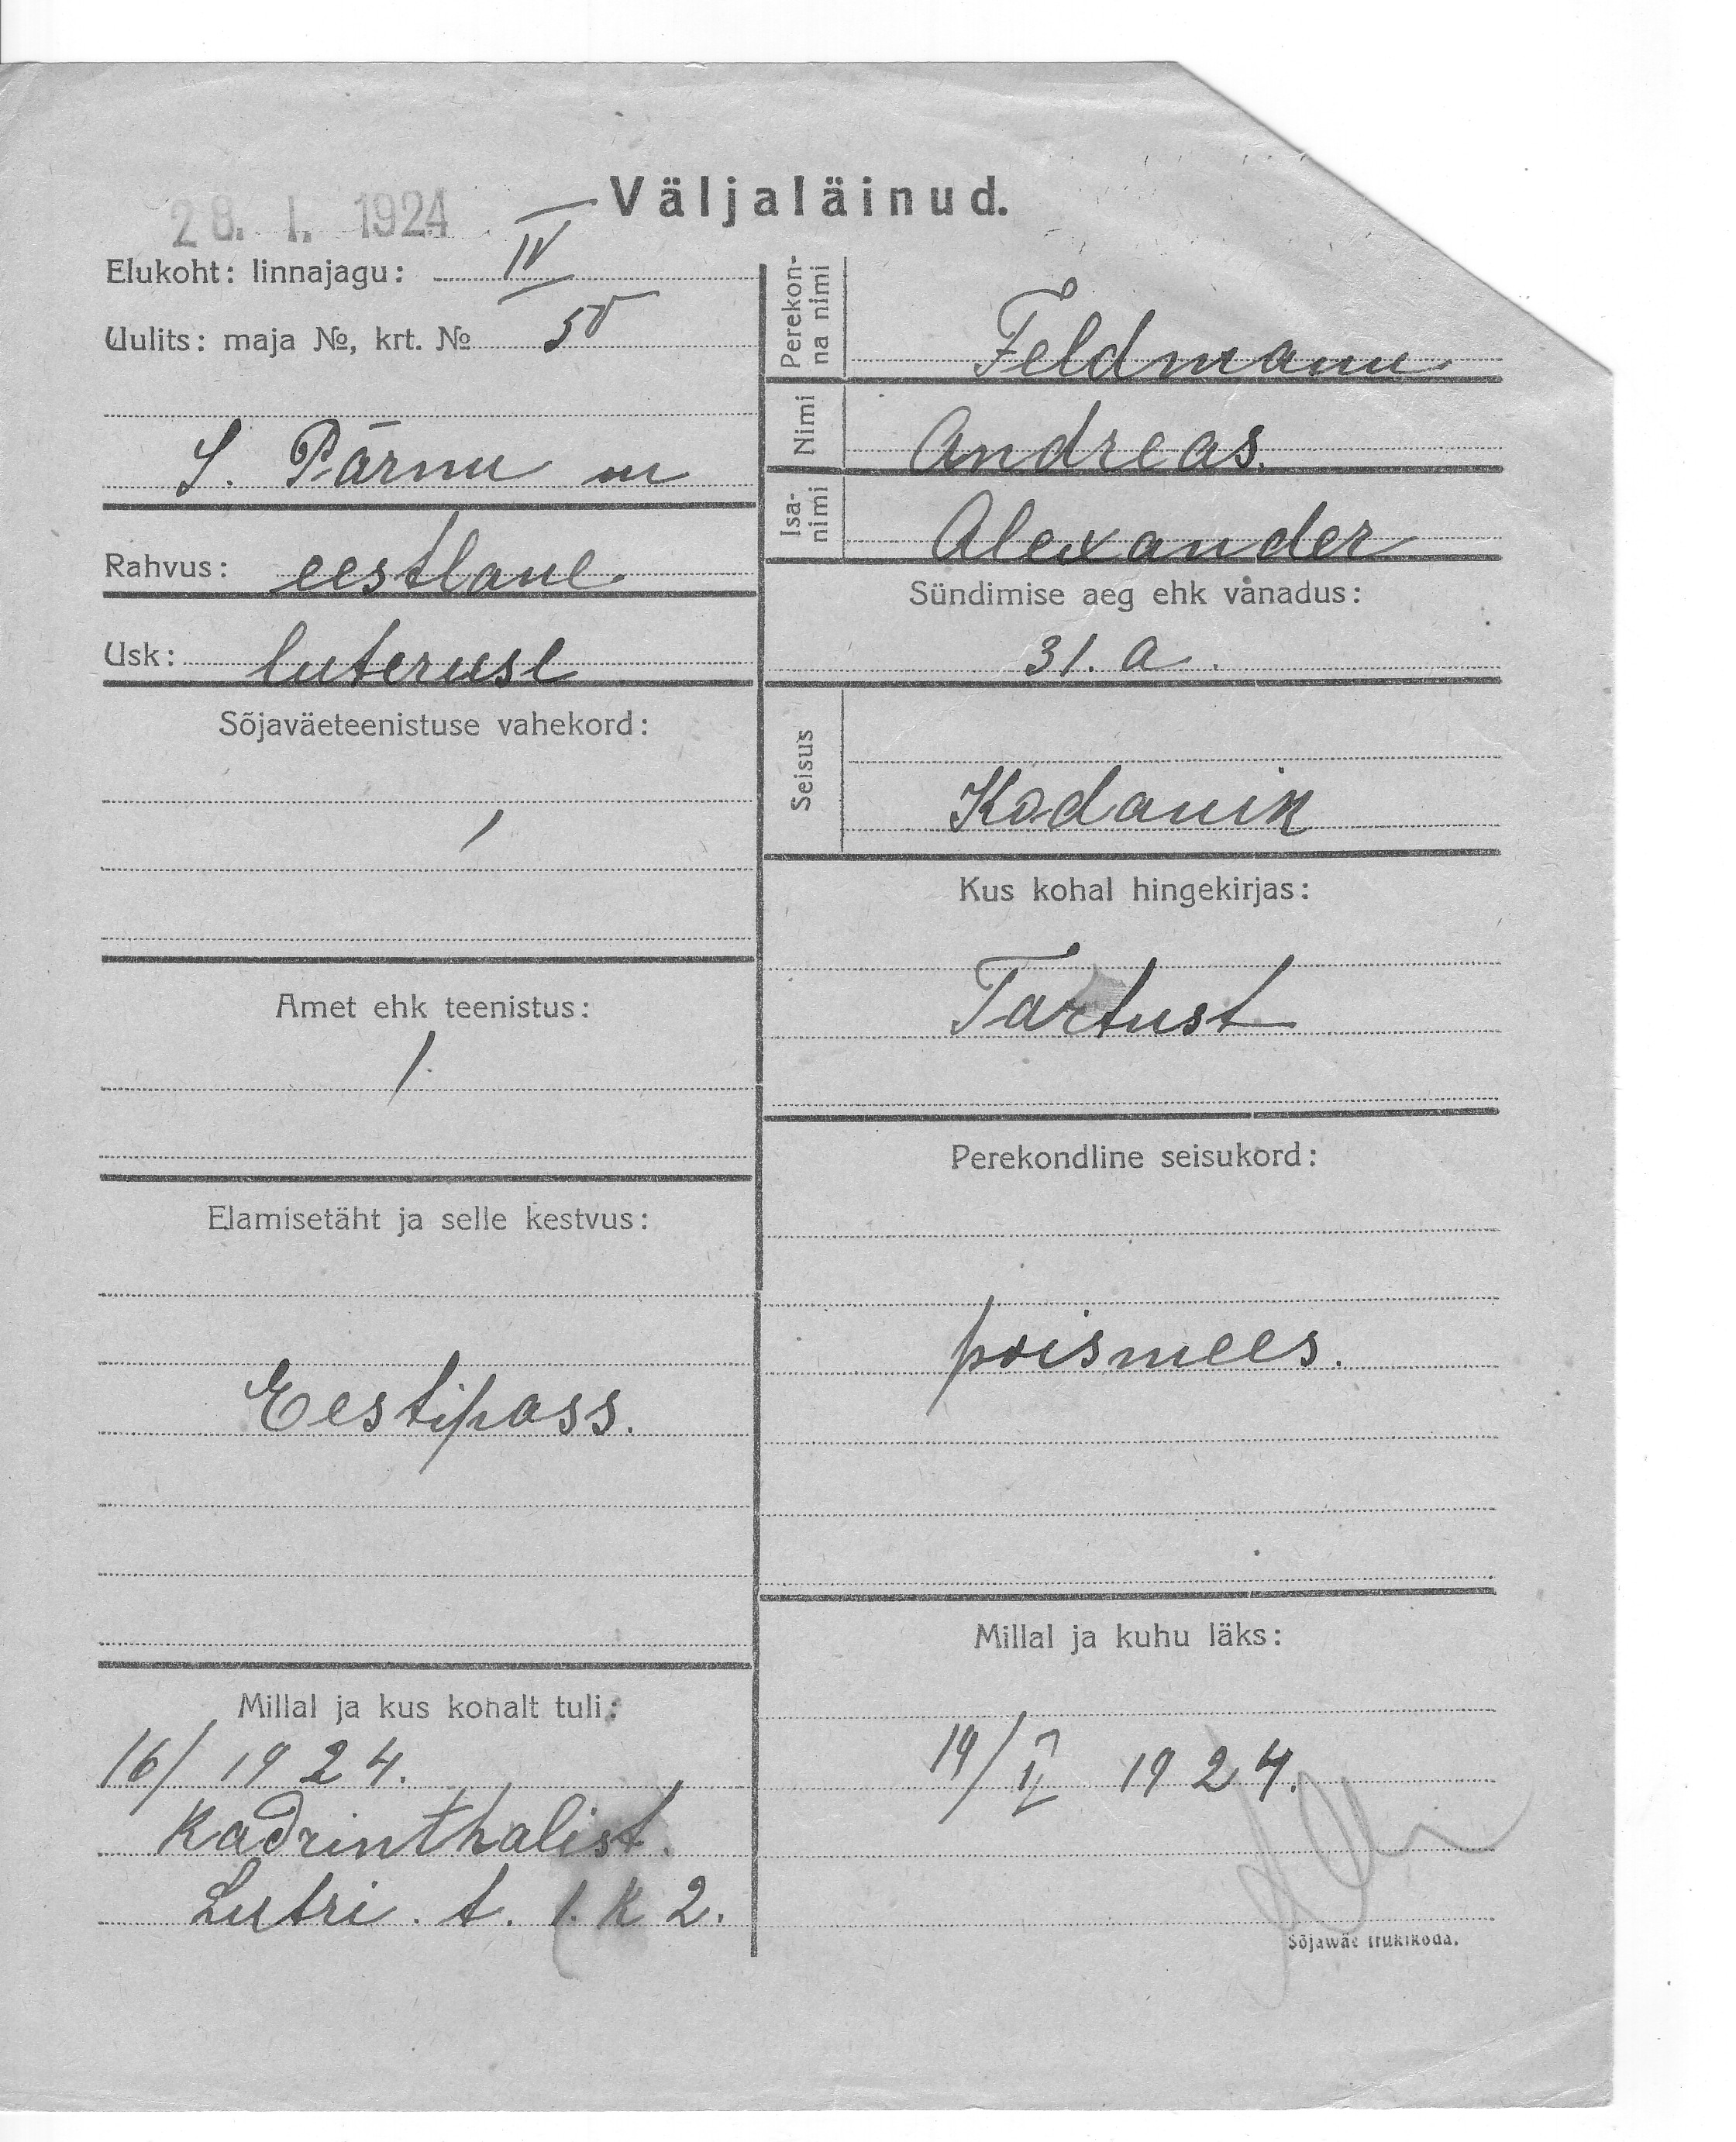 Väljaläinud.
28. I. 1924
Elukoht: linnajagu: IV
Uulits: maja №, krt. № 50
S. Pärnu m
Rahvus: eestlane
Usk: luteruse
Sõjaväeteenistuse vahekord:
Amet ehk teenistus:
Elamisetäht ja selle kestvus:
Eestipass.
Millal ja kus kohalt tuli:
16/ 1924.
Kadrinthalist.
Lutri. t. 1. k 2.
Perekon-
na nimi Feldmann
Nimi Andreas.
Isa-
nimi Alexander
Sündimise aeg ehk vanadus:
31. a.
Seisus
Kodanik
Kus kohal hingekirjas:
Tartust
Perekondline seisukord:
poismees.
Millal ja kuhu läks:
19/I 1924.
Sõjawäe trükikoda.